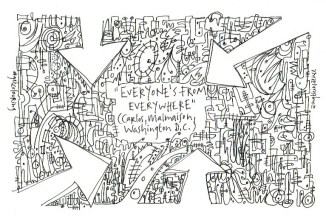 "EVERYONE'S FROM
EVERYWHERE"
(Carlos, Malmaison,
Washington D.C.